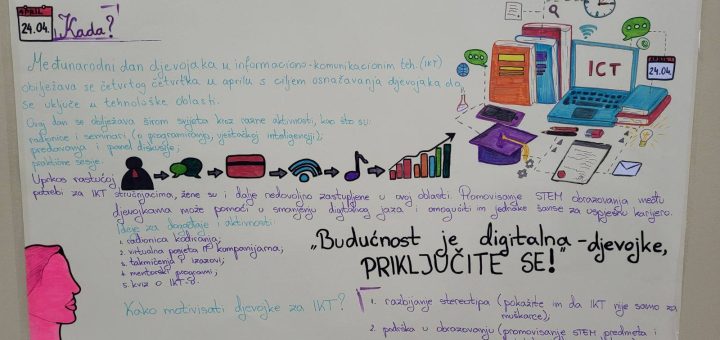 APRIL
24.04.
Kada?
Međunarodni dan djevojaka u informaciono-komunikacionim teh. (IKT)
obilježava se četvrtog četvrtka u aprilu s ciljem osnaživanja djevojaka da
se uključe u tehnološke oblasti.
Ovaj dan se obilježava širom svijeta kroz razne aktivnosti, kao što su:
radionice i seminari (o programiranju, vještačkoj inteligenciji);
predavanja i panel diskusije;
praktične sesije.
ICT
APRIL
24.04.
Uprkos rastućoj
potrebi za IKT stručnjacima, žene su i dalje nedovoljno zastupljene u ovoj oblasti. Promovisanje STEM obrazovanja među
djevojkama može pomoći u smanjenju digitalnog jaza i omogućiti im jednake šanse za uspješnu karijeru.
Ideje za događaje i aktivnosti:
1. radionica kodiranja;
2. virtualna posjeta IT kompanijama;
3. takmičenja i izazovi;
4. mentorski programi;
5. kviz o IKT-u.
„Budućnost je digitalna - djevojke,
PRIKLJUČITE SE!"
Kako motivisati djevojke za IKT?
1. razbijanje stereotipa (pokažite im da IKT nije samo za
muškarce);
2. podrška u obrazovanju (promovisanje STEM predmeta i